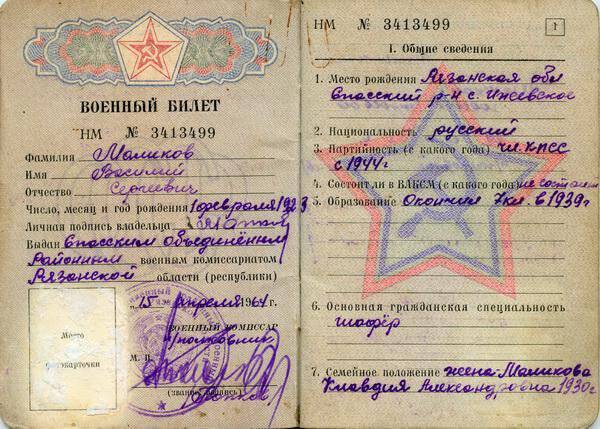 ВОЕННЫЙ БИЛЕТ
НМ № 3413499
Фамилия Маликов
Имя Василий
Отчество Сергеевич
Число, месяц и год рождения 1 февраля 1923
Личная подпись владельца
Выдан Спасским объединённым
Районным военным комиссариатом
Рязанской области (республики)
„15 апреля 1964 г.
Место
фотокарточки
ВОЕННЫЙ КОМИССАР
полковник
М. П.
(звание, подпись)
НМ № 3413499
1
1. Общие сведения
1. Место рождения Рязанская обл
Спасский р-н с. Ижевское
2. Национальность русский
3. Партийность (с какого года) чл. КПСС
с 1944 г
4. Состоит ли в ВЛКСМ (с какого года) не состоит
5. Образование Окончил 7 кл. в 1939 г
6. Основная гражданская специальность
шофёр
7. Семейное положение жена Маликова
Клавдия Александровна 1930 г